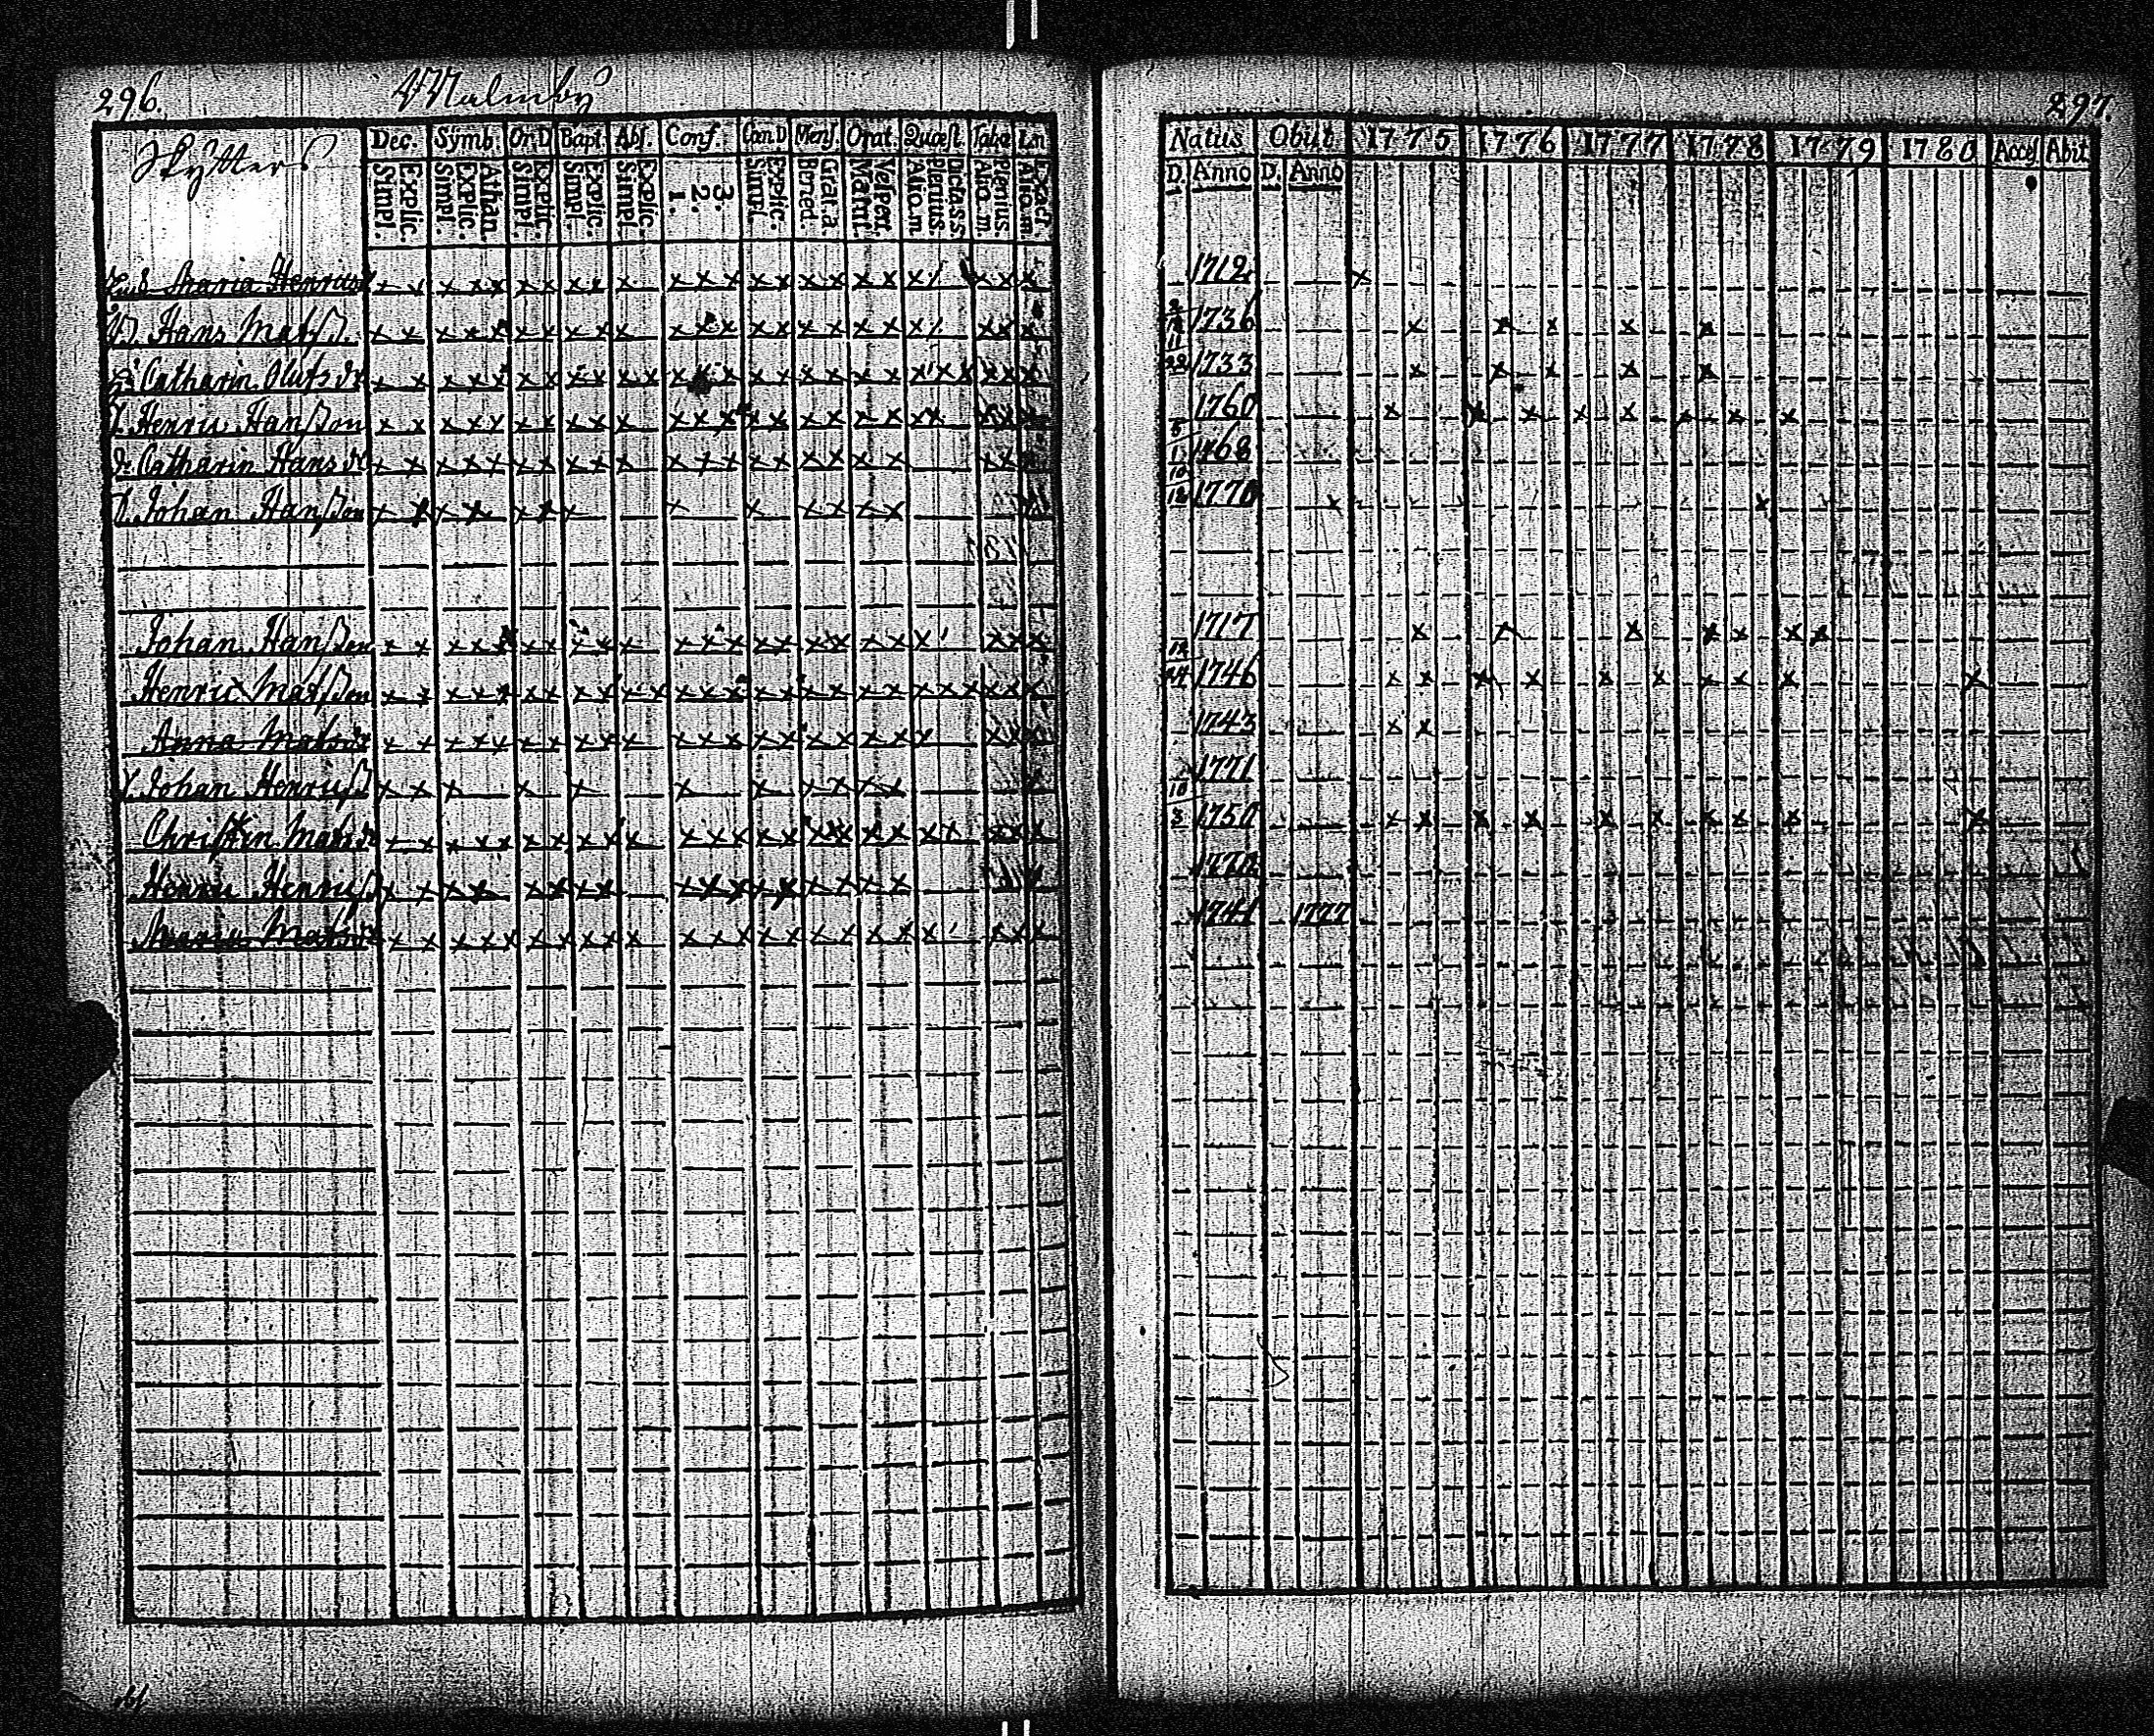 296.
Malmby
Skytters
Dec. Symb. Or.D Bapt. Abs. Conf. Cœn.D Mens. Orat. Quæst. Tabæ
Simpl. Explic. Simpl. Explic. Athan. Simpl. Explic. Simpl. Explic. Simpl. Explic. 1. 2. 3. Simpl. Explic. Bened. Grat.a Matut. Vesper. Alio.m Plenius Dicta.s.s. Alio.m Plenius Alio.m Exact.
Maria Henrics
Hans Matsß.
Catharin Olufs dr
Henric Hanßon
Catharin Hans dr
Johan Hanßon
Johan Hanßon
Henric Matsßon
Anna Mats dr
Johan Henricß
Christin Mats dr
Henric Henricß
Maria Mats dr
297.
Natus Obiit 1775 1776 1777 1778 1779 1780 Acces Abit
D. Anno D. Anno
1712
1736
22 1733
1760
1768
10/12 1770
1717
12/24 1746
1743
1771
10/8 1750
1741 1777